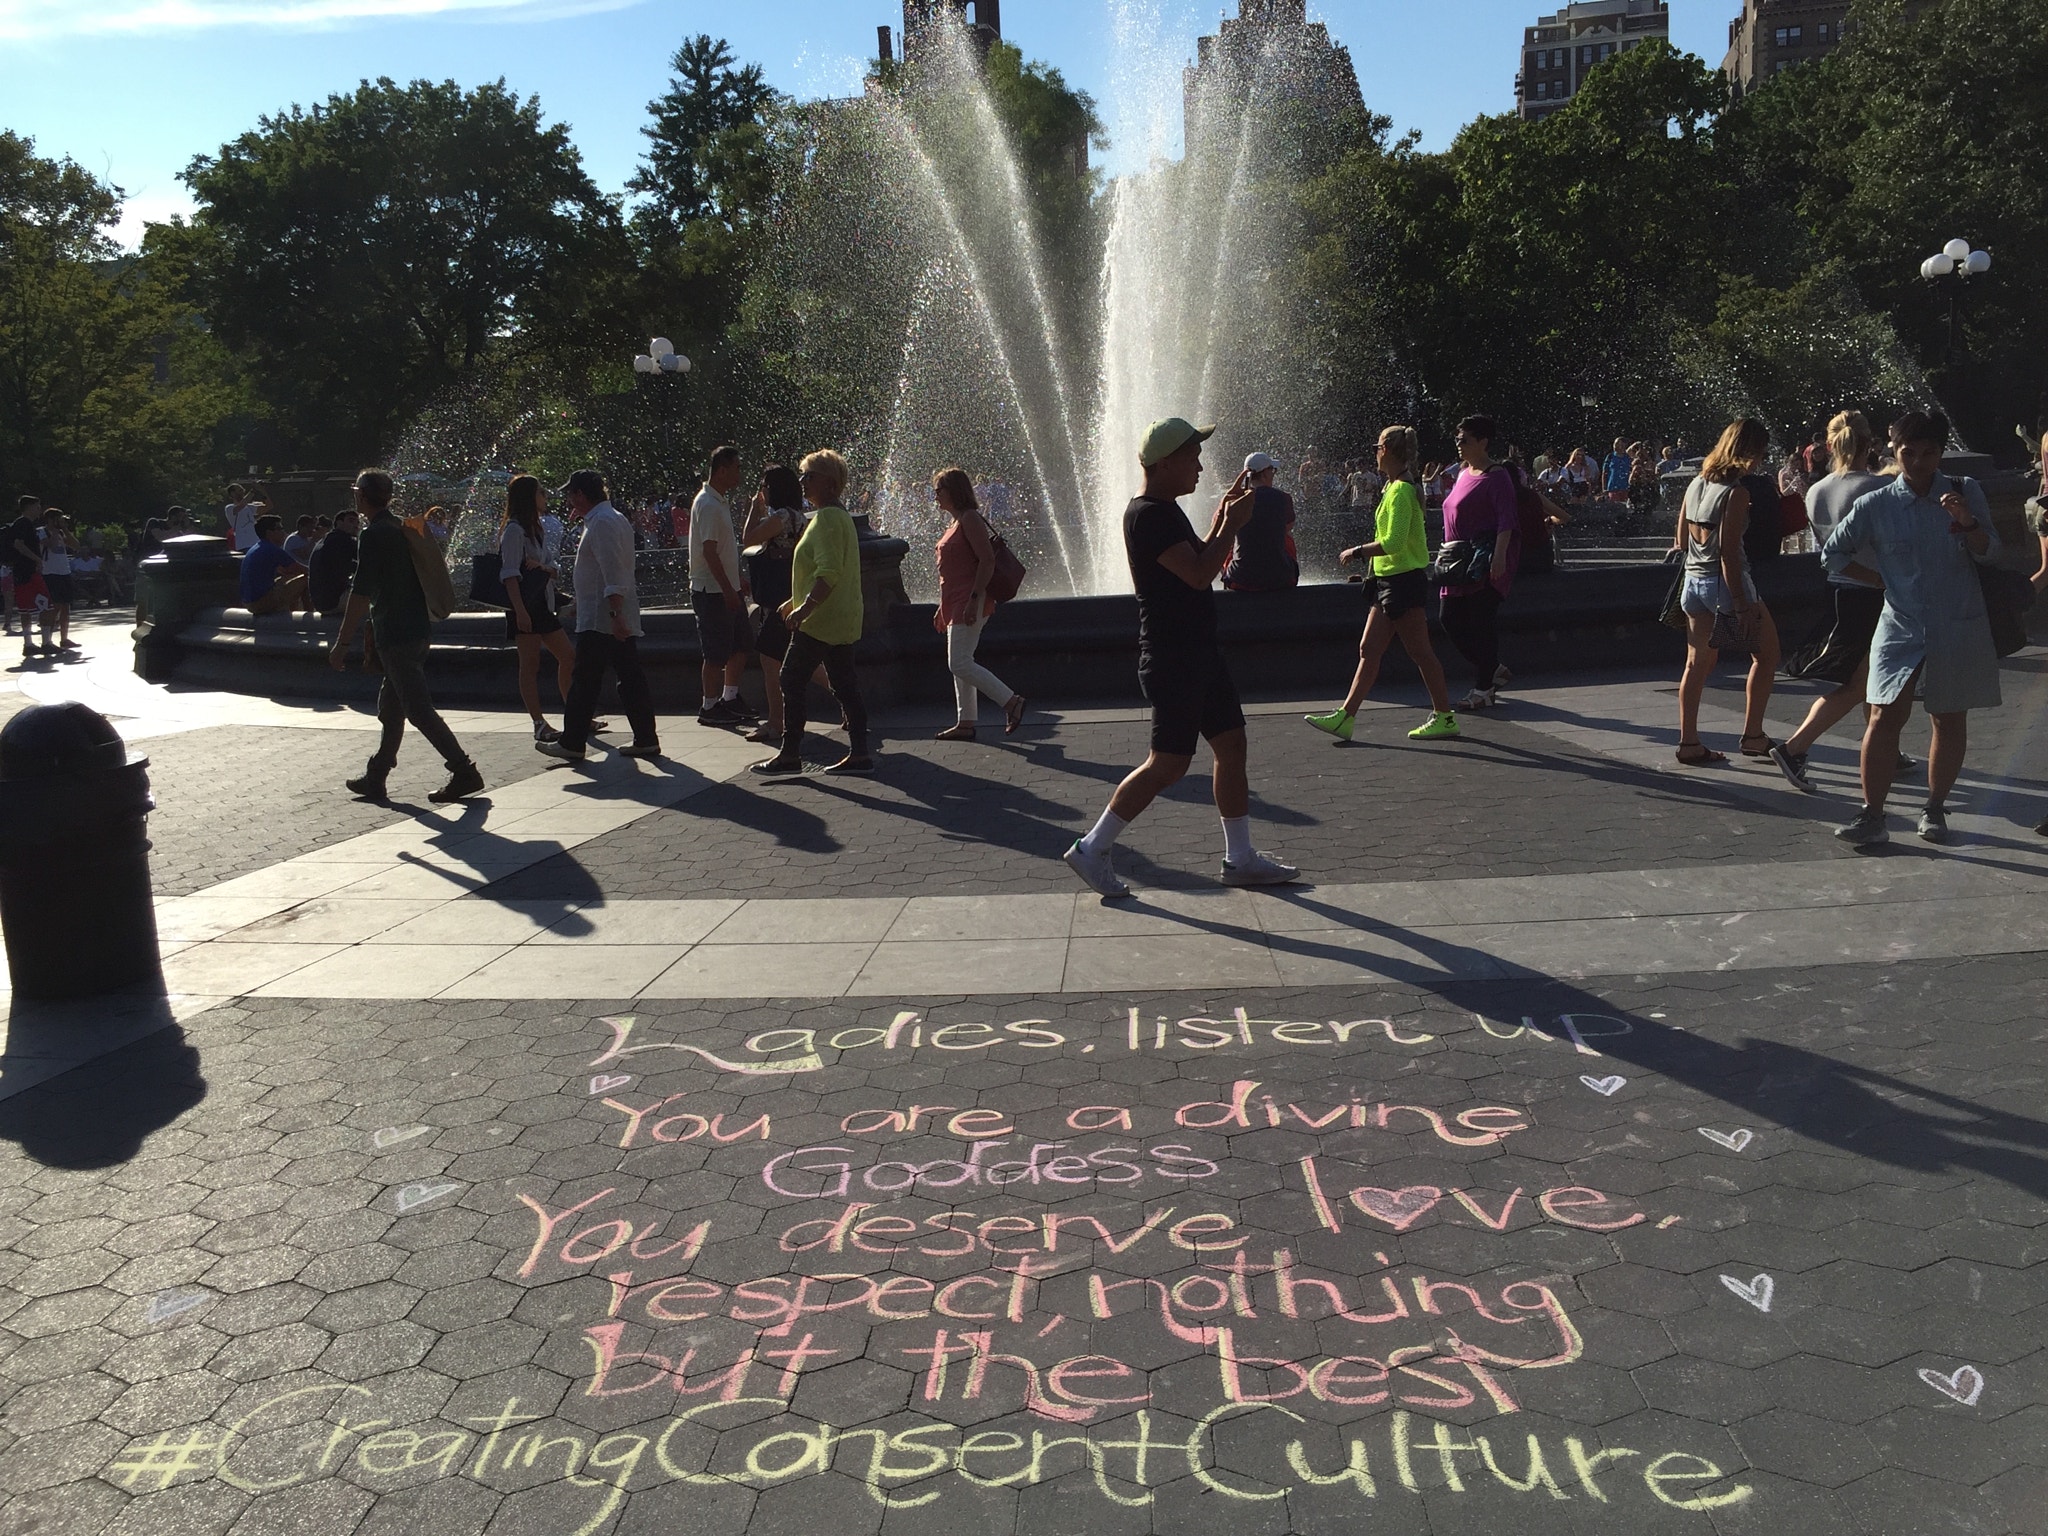 Ladies, listen up
You are a divine
Goddess
You deserve love,
respect, nothing
but the best
#CreatingConsentCulture